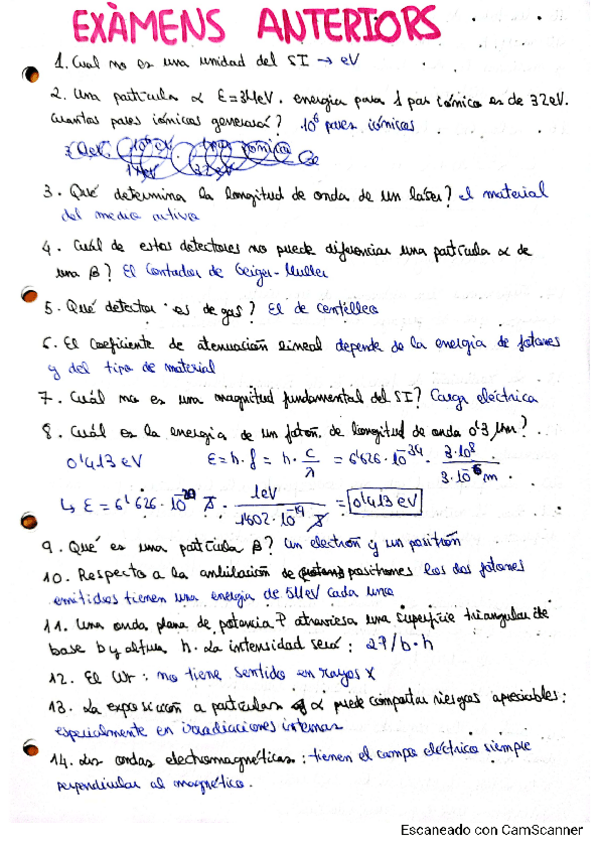 EXÀMENS ANTERIORS
1. Cual no es una unidad del SI → eV
2. Una partícula α E=3'2MeV. energía para 1 par iónico es de 32eV.
Cuantos pares iónicos generará? 10⁶ pares iónicos
3. Qué determina la longitud de onda de un láser? el material
del medio activo
4. Cuál de estos detectores no puede diferenciar una partícula α de
una β? El Contador de Geiger-Muller
5. Qué detector es de gas? El de centelleo
6. El coeficiente de atenuación lineal depende de la energía de fotones
y del tipo de material
7. Cuál no es una magnitud fundamental del SI? Carga eléctrica
8. Cuál es la energia de un fotón de longitud de onda 0'3 μm?
0'413 eV E = h · f = h · c/λ = 6'626 · 10⁻³⁴ · 3·10⁸ / 3·10⁻⁶ m
↳ E = 6'626 · 10⁻²⁰ J · 1eV / 1'602 · 10⁻¹⁹ J = 0'413 eV
9. Qué es una partícula β? Un electrón y un positrón
10. Respecto a la anhilación de positrones los dos fotones
emitidos tienen una energía de 511eV cada uno
11. Una onda plana de potencia P atraviesa una superficie triangular de
base b y altura h. La intensidad será: 2P/b·h
12. El Wr: no tiene sentido en rayos X
13. La exposición a partículas α puede comportar riesgos apreciables:
especialmente en irradiaciones internas
14. Las ondas electromagnéticas: tienen el campo eléctrico siempre
perpendicular al magnético.
Escaneado con CamScanner